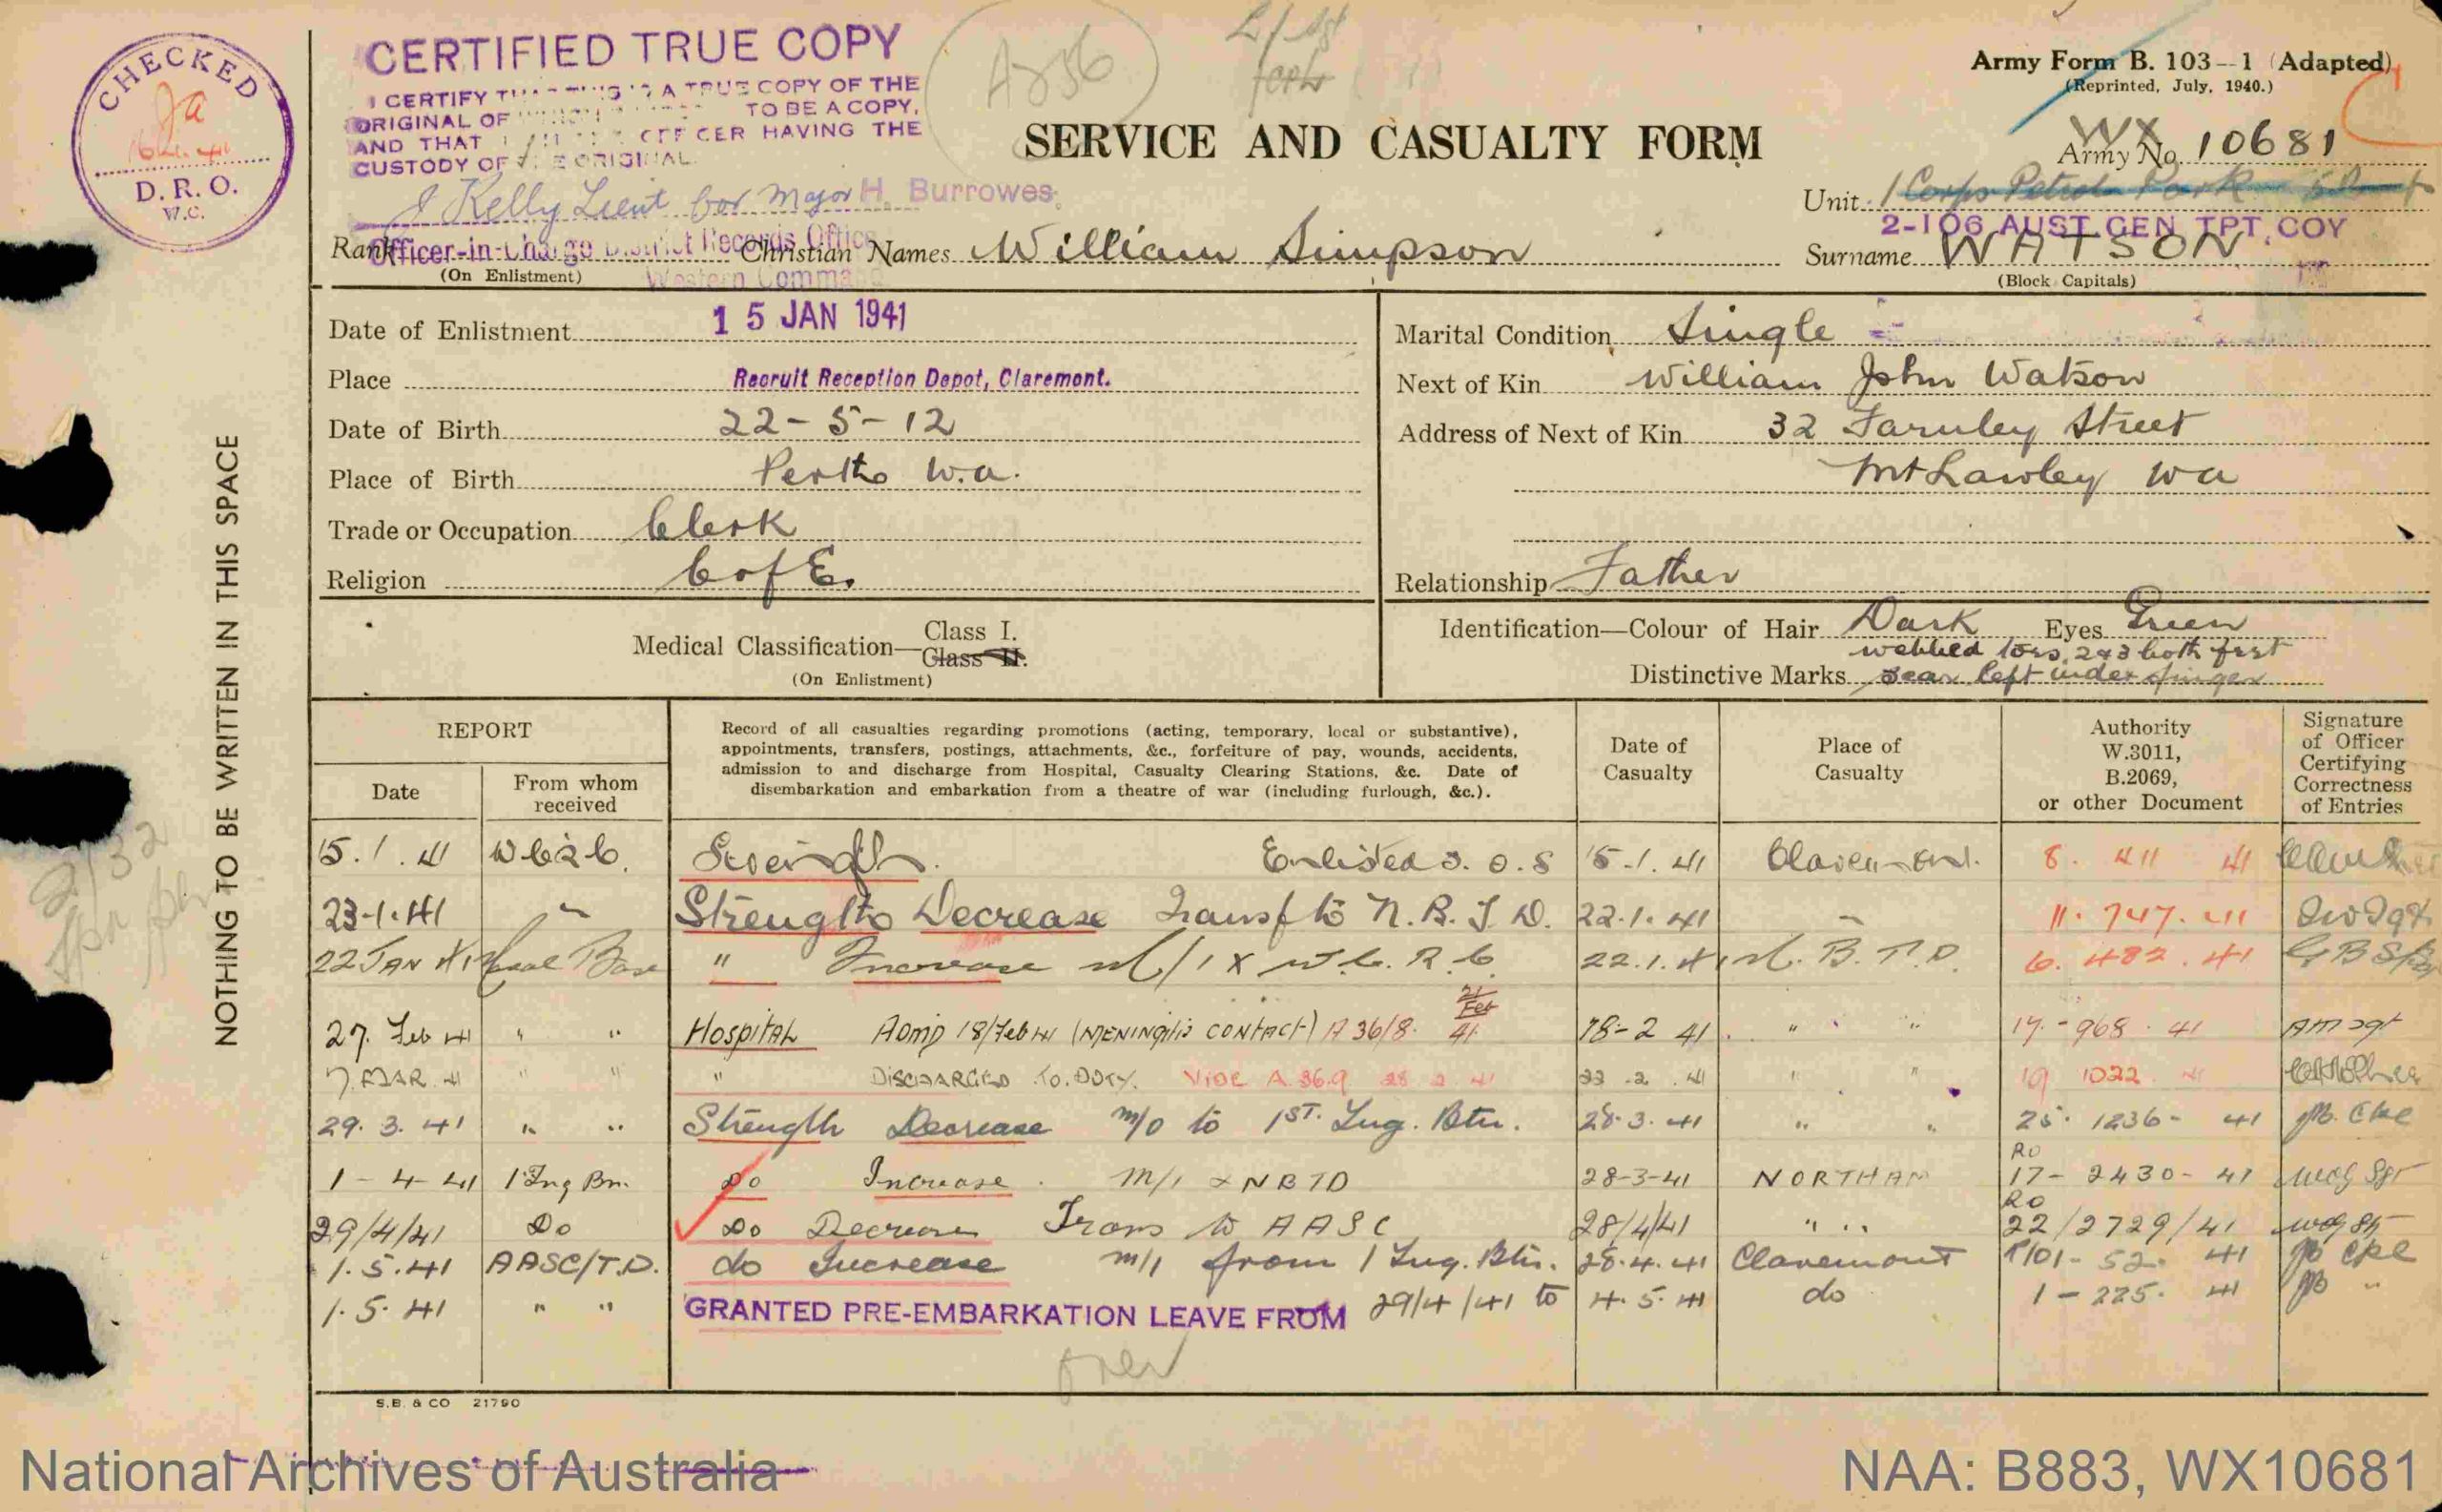 CHECKED
D. R. O.
W.C.
CERTIFIED TRUE COPY
I CERTIFY A TRUE COPY OF THE
ORIGINAL OF TO BE A COPY,
AND THAT OFFICER HAVING THE
CUSTODY OF THE ORIGINAL
J Kelly Lieut for Major H. Burrowes.
Officer-in-Charge District Records Office
Western Command
4856
Army Form B. 103—1 (Adapted)
(Reprinted, July, 1940.)
SERVICE AND CASUALTY FORM
WX
Army No. 10681
Unit 1 Corps Petrol Park
2-106 AUST GEN TPT COY
Rank
(On Enlistment)
Christian Names William Simpson
Surname WATSON
(Block Capitals)
Date of Enlistment 15 JAN 1941
Place Recruit Reception Depot, Claremont.
Date of Birth 22-5-12
Place of Birth Perth W.a.
Trade or Occupation Clerk
Religion C of E.
Marital Condition Single
Next of Kin William John Watson
Address of Next of Kin 32 Farnley Street
Mt Lawley Wa
Relationship Father
Medical Classification— Class I.
Class II.
(On Enlistment)
Identification—Colour of Hair Dark Eyes Green
webbed toes 2 & 3 both feet
Distinctive Marks Scar left index finger
NOTHING TO BE WRITTEN IN THIS SPACE
REPORT
Date
From whom received
Record of all casualties regarding promotions (acting, temporary, local or substantive),
appointments, transfers, postings, attachments, &c., forfeiture of pay, wounds, accidents,
admission to and discharge from Hospital, Casualty Clearing Stations, &c. Date of
disembarkation and embarkation from a theatre of war (including furlough, &c.).
Date of Casualty
Place of Casualty
Authority W.3011, B.2069, or other Document
Signature of Officer Certifying Correctness of Entries
15.1.41 Strength. Enlisted 15.1.41 Claremont. 8. 411 41
23.1.41 " Strength Decrease Transf to N.B.T.D. 22.1.41 11. 747. 41
22 JAN 41 " Increase M/1 X W.C.R.C. 22.1.41 N.B.T.D. 6. 482. 41
27. Feb 41 " " Hospital Admd 18/Feb 41 (MENINGITIS CONTACT) A 36/8. 21 Feb 41 18-2 41 " " 17.-968. 41
7. MAR. 41 " " " DISCHARGED TO. DUTY. VIDE A.36.9 28 2 41 " " 19 1022 41
29. 3. 41 " " Strength Decrease M/O to 1ST. Trg. Btn. 28.3.41 " " 25. 1236- 41
1-4-41 1 Trg Bn. Do Increase. M/1 X NBTD 28-3-41 NORTHAM RO 17-2430-41
29/4/41 Do Do Decrease Trans to AASC 28/4/41 " " RO 22/2729/41
1.5.41 AASC/T.D. do Increase M/1 from 1 Trg. Btn. 28.4.41 Claremont 52. 41
1.5.41 " " GRANTED PRE-EMBARKATION LEAVE FROM 29/4/41 to 4.5.41 do 1-225. 41
over
S.B. & CO 21790
National Archives of Australia
NAA: B883, WX10681